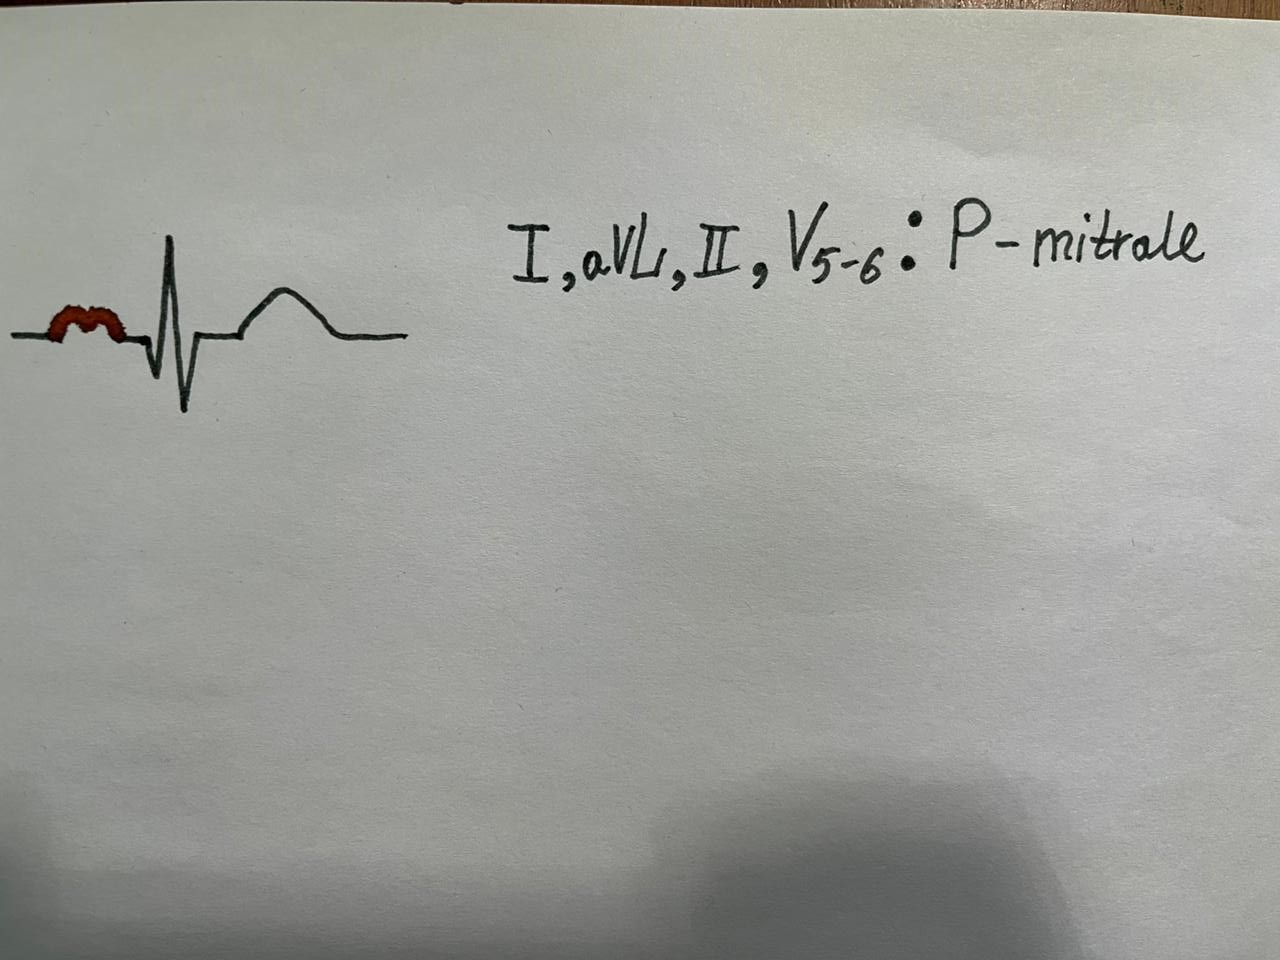 I, aVL, II, V5-6: P-mitrale